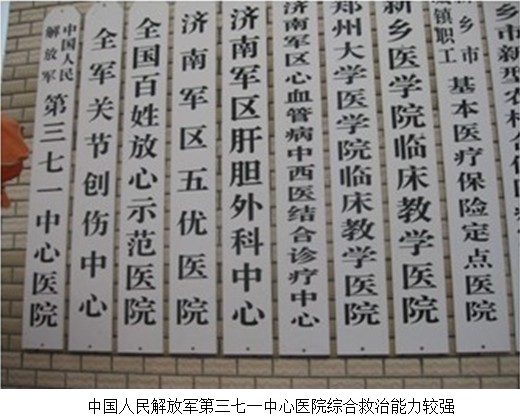 中国人民
解放军
第三七一中心医院
全军关节创伤中心
全国百姓放心示范医院
济南军区五优医院
济南军区肝胆外科中心
济南军区心血管病中西医结合诊疗中心
郑州大学医学院临床教学医院
新乡医学院临床教学医院
城镇职工
新乡市
基本医疗保险定点医院
乡市新型农村合
中国人民解放军第三七一中心医院综合救治能力较强